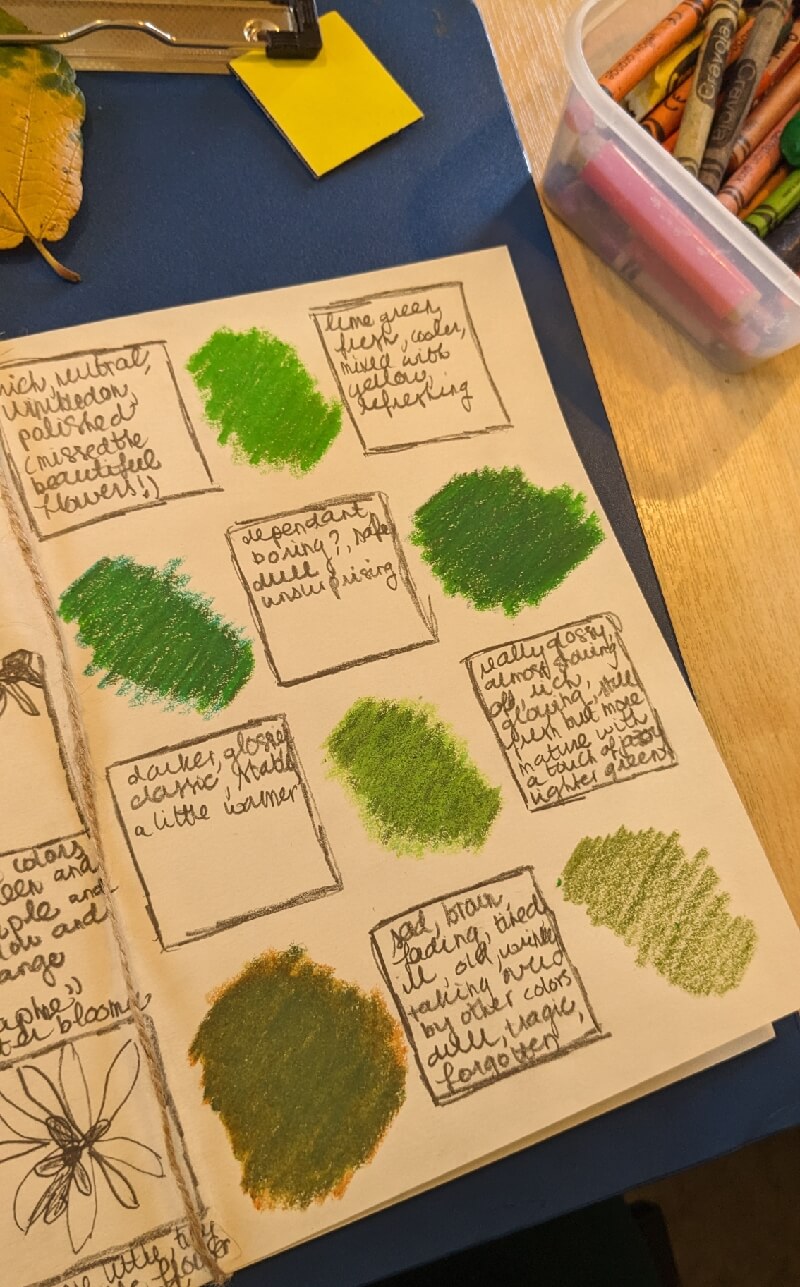 rich, neutral,
wimbledon,
polished
(missed the
beautiful
flowers!)
lime green,
fresh, cooler,
mixed with
yellow,
refreshing
dependant
boring?, safe
dull
unsurprising
really glossy,
almost showing
off, rich,
glowing, still
fresh but more
mature with
a touch of
lighter green
darker, glossier
classic, stable
a little warmer
sad, brown,
fading, tired,
ill, old,
taking over
by other colors
dull, tragic,
forgotten
colors
een and
ple and
low and
ange
bloom
little tiny
flower
Crayola
Crayola